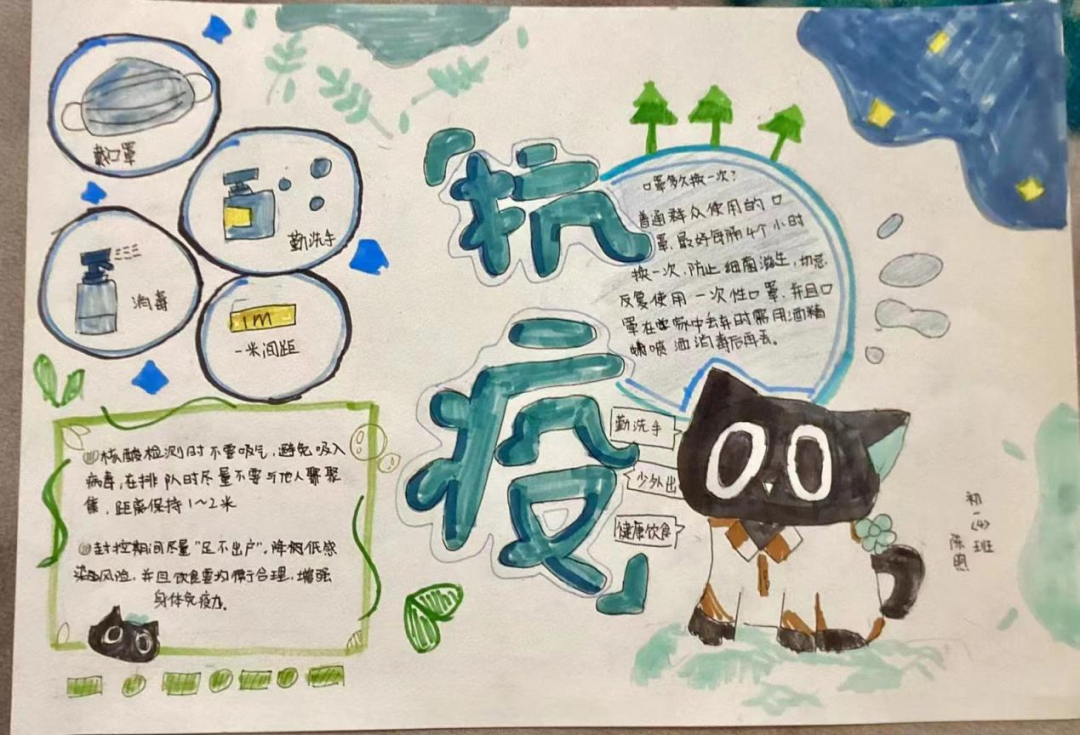 戴口罩
勤洗手
消毒
1M
一米间距
抗
疫
口罩多久换一次？
普通群众使用的口
罩,最好每隔4个小时
换一次,防止细菌滋生,切忌
反复使用一次性口罩,并且口
罩在
丢弃时需用酒精
喷洒消毒后再丢。
勤洗手
少外出
健康饮食
①核酸检测时不要吸气,避免吸入
病毒,在排队时尽量不要与他人聚
集,距离保持1~2米
②封控期间尽量“足不出户”,降低感
染风险,并且饮食要均衡合理,增强
身体免疫力。
初一(4)班
陈